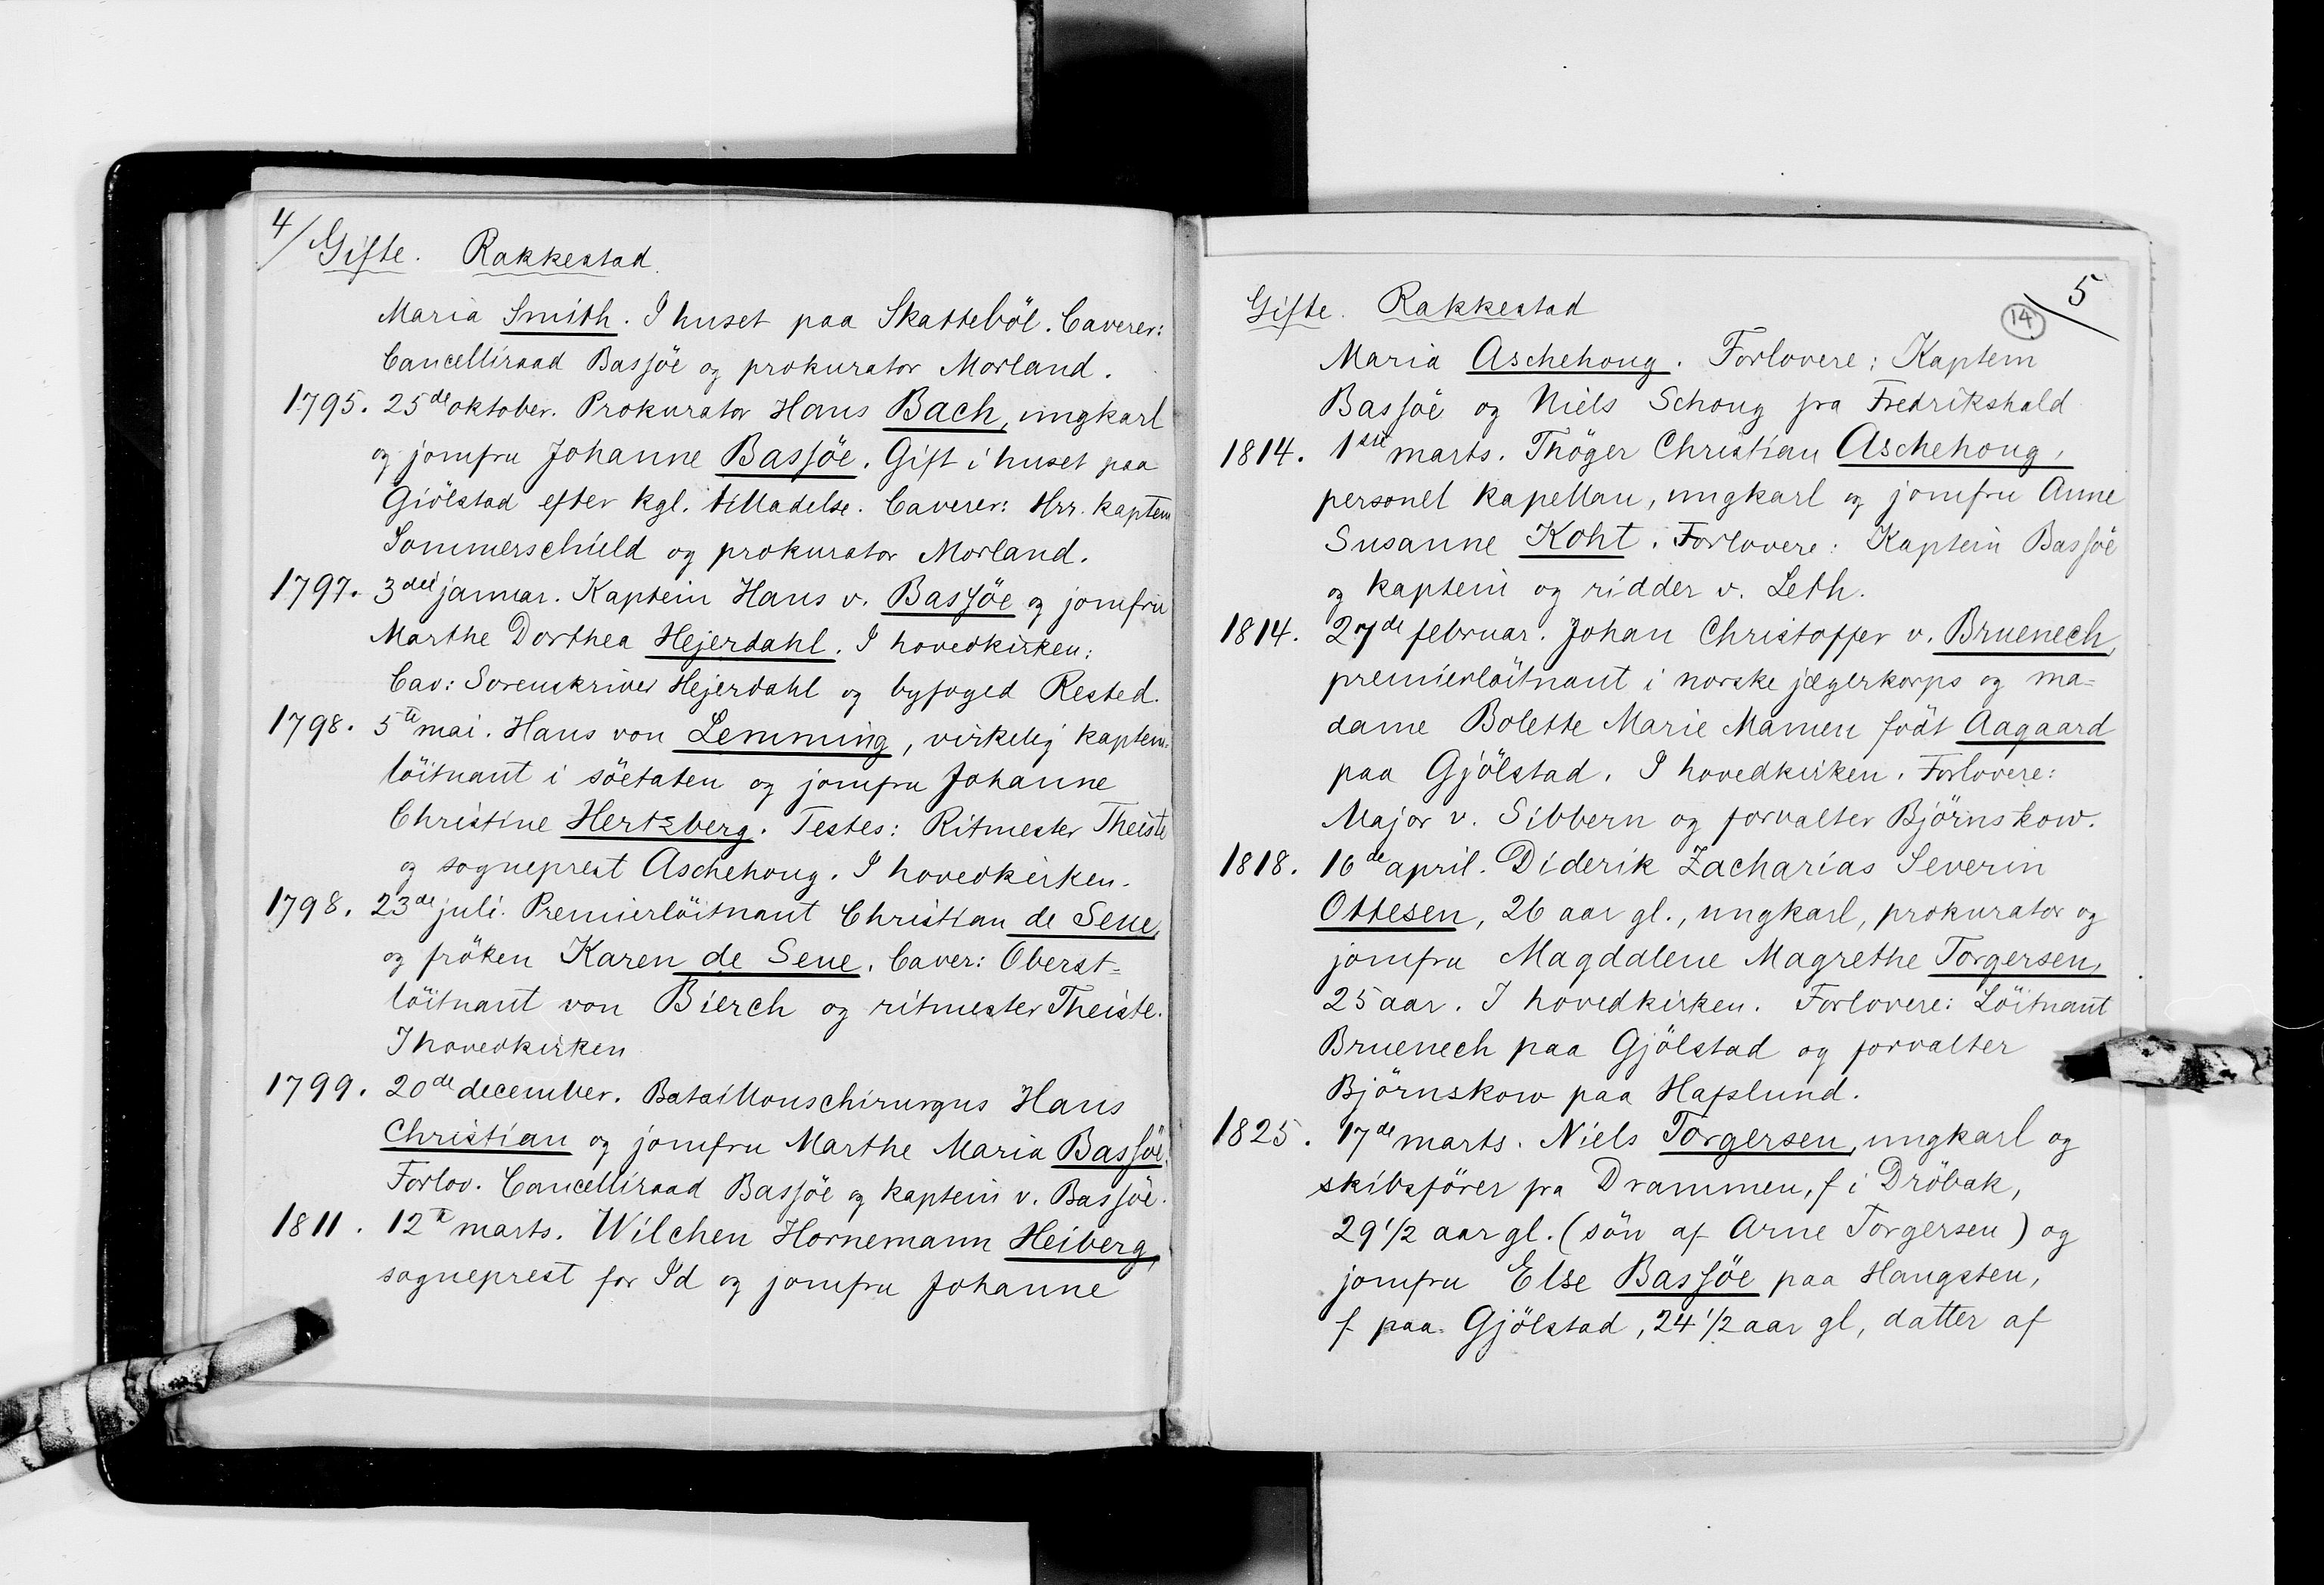 4/
Gifte. Rakkestad.
Maria Smith. I huset paa Skatteböl. Caverer:
Cancelliraad Bassöe og prokurator Morland.
1795. 25de oktober. Prokurator Hans Bach, ungkarl
og jomfru Johanne Bassöe. Gift i huset paa
Giölstad efter kgl. tilladelse. Caverer: Hrr. kaptein
Sommerschield og prokurator Morland.
1797. 3die januar. Kaptein Hans v. Bassöe og jomfru
Marthe Dorthea Hejerdahl. I hovedkirken:
Cav: Sorenskriver Hejerdahl og byfoged Rested.
1798. 5te mai. Hans von Lemming, virkelig kaptein-
löitnant i söetaten og jomfru Johanne
Christine Hertzberg. Testes: Ritmester Theiste
og sogneprest Aschehoug. I hovedkirken.
1798. 23de juli. Premierlöitnant Christian de Seue,
og fröken Karen de Seue. Caver: Oberst-
löitnant von Bierch og ritmester Theiste.
I hovedkirken
1799. 20de december. Bataillonschirurgus Hans
Christian og jomfru Marthe Maria Bassöe.
Forlov. Cancelliraad Bassöe og kaptein v. Bassöe.
1811. 12te marts. Wilchen Hornemann Heiberg,
sogneprest for Id og jomfru Johanne
5
14
Gifte. Rakkestad
Maria Aschehoug. Forlovere: Kaptein
Bassöe og Niels Schoug fra Fredrikshald
1814. 1ste marts. Thöger Christian Aschehoug,
personel kapellan, ungkarl og jomfru Anne
Susanne Koht. Forlovere: Kaptein Bassöe
og kaptein og ridder v. Leth.
1814. 27de februar. Johan Christoffer v. Bruenech,
premierlöitnant i norske jægerkorps og ma-
dame Bolette Marie Mamen födt Aagaard
paa Gjölstad. I hovedkirken. Forlovere:
Major v. Sibbern og forvalter Björnskow.
1818. 16de april. Diderik Zacharias Severin
Ottesen, 26 aar gl., ungkarl, prokurator og
jomfru Magdalene Magrethe Torgersen,
25 aar. I hovedkirken. Forlovere: Löitnant
Bruenech paa Gjölstad og forvalter
Björnskow paa Hafslund.
1825. 17de marts. Niels Torgersen, ungkarl og
skibsförer fra Drammen, f i Dröbak,
29 1/2 aar gl. (sön af Arne Torgersen) og
jomfru Else Bassöe paa Haugsten,
f paa Gjölstad, 24 1/2 aar gl, datter af